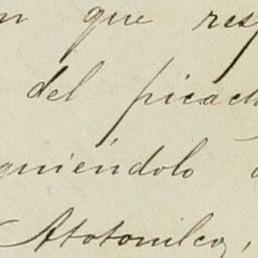 n que res
del picach
guiéndolo a
Atotonilco,